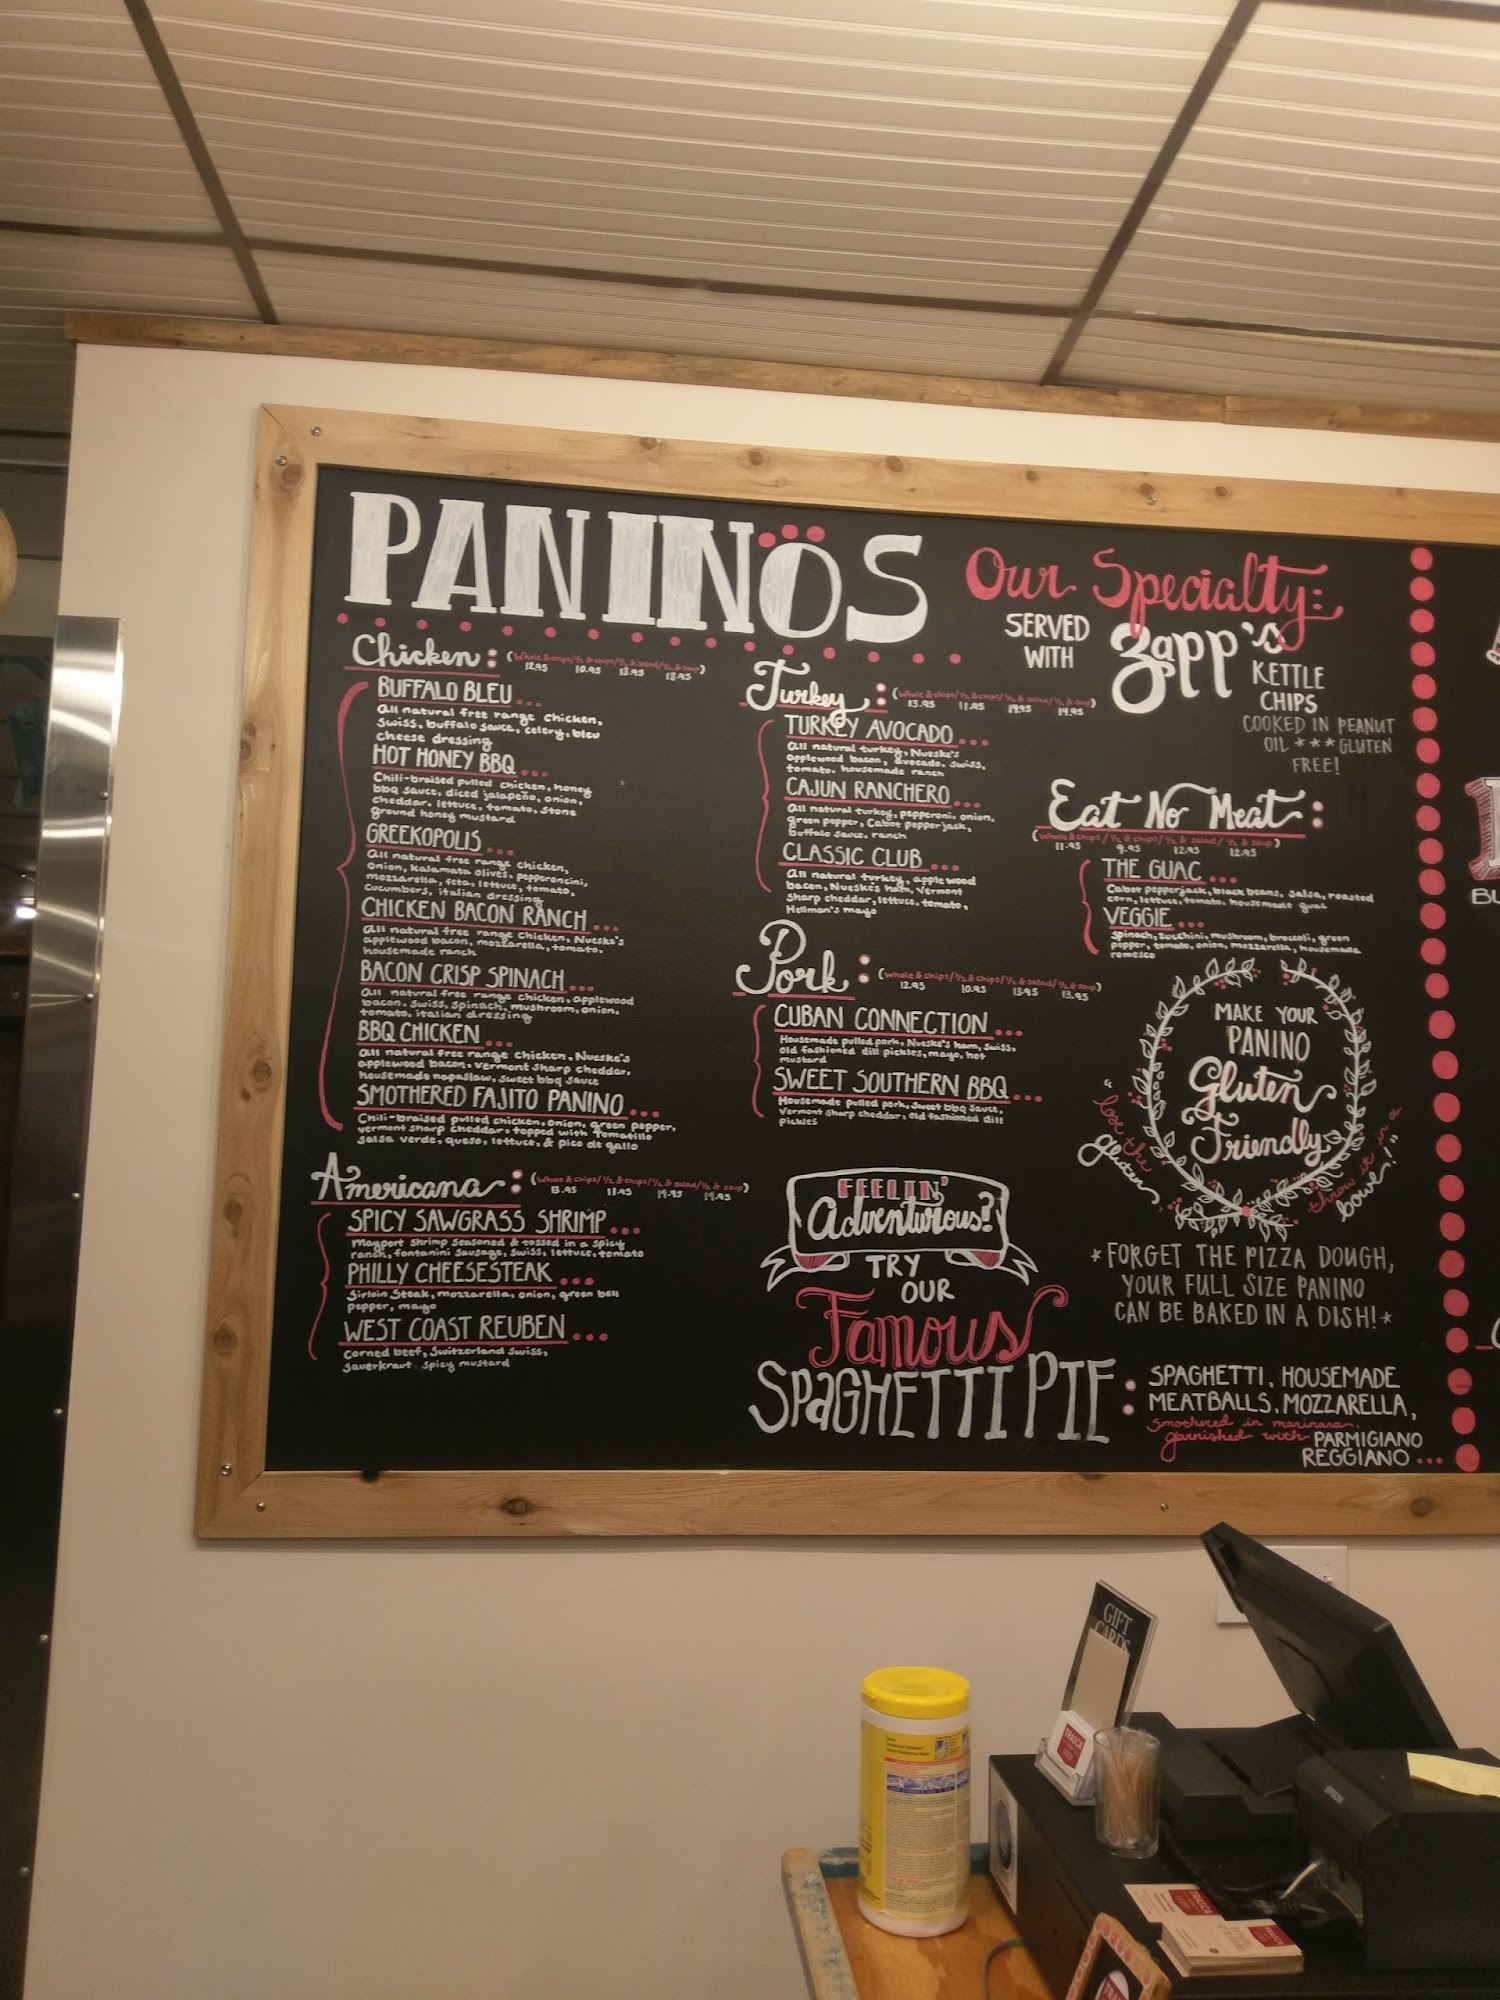 PANINOS
Our Specialty:
SERVED
WITH
Zapp's
KETTLE
CHIPS
COOKED IN PEANUT
OIL ***GLUTEN
FREE!
Chicken: (Whole & chips/½ & chips/½ & salad/½ & soup)
12.95 10.95 13.95 13.95
BUFFALO BLEU...
All natural free range chicken,
swiss, buffalo sauce, celery, bleu
cheese dressing
HOT HONEY BBQ...
Chili-braised pulled chicken, honey
bbq sauce, diced jalapeño, onion,
cheddar, lettuce, tomato, stone
ground honey mustard
GREEKOPOLIS...
All natural free range chicken,
onion, kalamata olives, pepperoncini,
mozzarella, feta, lettuce, tomato,
cucumbers, italian dressing
CHICKEN BACON RANCH...
All natural free range chicken, Nueske's
applewood bacon, mozzarella, tomato,
housemade ranch
BACON CRISP SPINACH...
All natural free range chicken, applewood
bacon, swiss, spinach, mushroom, onion,
tomato, italian dressing
BBQ CHICKEN...
All natural free range chicken, Nueske's
applewood bacon, vermont sharp cheddar,
housemade napaslaw, sweet bbq sauce
SMOTHERED FAJITO PANINO...
Chili-braised pulled chicken, onion, green pepper,
vermont sharp cheddar, topped with Tomatillo
salsa verde, queso, lettuce, & pico de gallo
Americana: (Whole & chips/½ & chips/½ & salad/½ & soup)
13.95 11.95 14.95 14.95
SPICY SAWGRASS SHRIMP...
Mayport shrimp seasoned & tossed in a spicy
ranch, fontanini sausage, swiss, lettuce, tomato
PHILLY CHEESESTEAK...
Sirloin steak, mozzarella, onion, green bell
pepper, mayo
WEST COAST REUBEN...
Corned beef, Switzerland swiss,
sauerkraut, spicy mustard
Turkey: (Whole & chips/½ & chips/½ & salad/½ & soup)
13.95 11.95 14.95 14.95
TURKEY AVOCADO...
All natural turkey, Nueske's
applewood bacon, avocado, swiss,
tomato, housemade ranch
CAJUN RANCHERO...
All natural turkey, pepperoni, onion,
green pepper, Cabot pepperjack,
buffalo sauce, ranch
CLASSIC CLUB...
All natural turkey, applewood
bacon, Nueske's ham, Vermont
sharp cheddar, lettuce, tomato,
Hellman's mayo
Pork: (Whole & chips/½ & chips/½ & salad/½ & soup)
12.95 10.95 13.95 13.95
CUBAN CONNECTION...
Housemade pulled pork, Nueske's ham, swiss,
old fashioned dill pickles, mayo, hot
mustard
SWEET SOUTHERN BBQ...
Housemade pulled pork, sweet bbq sauce,
Vermont sharp cheddar, old fashioned dill
pickles
Eat No Meat:
(Whole & chips/½ & chips/½ & salad/½ & soup)
11.95 9.95 12.95 12.95
THE GUAC...
Cabot pepperjack, black beans, salsa, roasted
corn, lettuce, tomato, housemade guac
VEGGIE...
Spinach, zucchini, mushroom, broccoli, green
pepper, tomato, onion, mozzarella, housemade
romesco
MAKE YOUR
PANINO
Gluten
Friendly
"lose the
gluten,
throw it in a
bowl!"
*FORGET THE PIZZA DOUGH,
YOUR FULL SIZE PANINO
CAN BE BAKED IN A DISH!*
FEELIN'
Adventurous?
TRY
OUR
Famous
SPAGHETTI PIE:
SPAGHETTI, HOUSEMADE
MEATBALLS, MOZZARELLA,
smothered in marinara,
garnished with PARMIGIANO
REGGIANO...
BU
GIFT
CARDS
TRASCA
EPSON
TRASCA